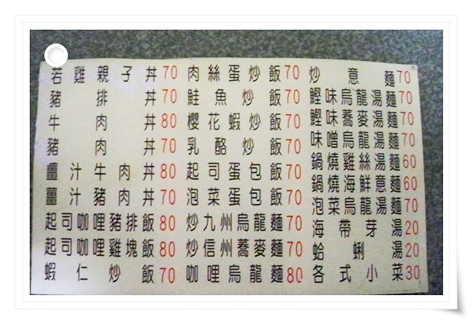 若雞親子丼70
豬排丼70
牛肉丼80
豬肉丼70
薑汁牛肉丼80
薑汁豬肉丼70
起司咖哩豬排飯80
起司咖哩雞塊飯80
蝦仁炒飯70
肉絲蛋炒飯70
鮭魚炒飯70
櫻花蝦炒飯70
乳酪炒飯70
起司蛋包飯70
泡菜蛋包飯70
炒九州烏龍麵70
炒信州蕎麥麵70
咖哩烏龍麵80
炒意麵70
鰹味烏龍湯麵70
鰹味蕎麥湯麵70
味噌烏龍湯麵70
鍋燒雞絲湯麵60
鍋燒海鮮意麵60
泡菜烏龍湯麵70
海帶芽湯20
蛤蜊湯20
各式小菜30